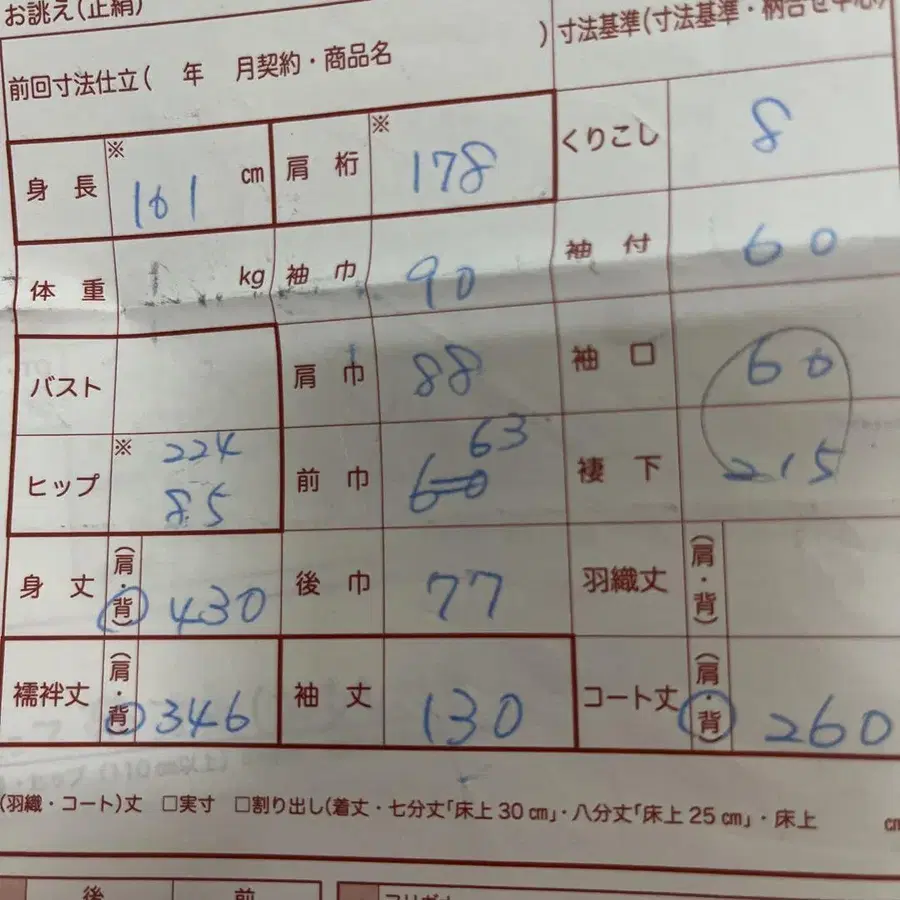 お誂え(正絹)
前回寸法仕立( 年 月契約・商品名 )
寸法基準(寸法基準・柄合せ中心)
身長 ※ 161 cm 肩裄 ※ 178 くりこし 8
体重 kg 袖巾 90 袖付 60
バスト 肩巾 88 袖口 60
ヒップ ※ 224 85 前巾 60 63 褄下 215
身丈 (肩・背) 430 後巾 77 羽織丈 (肩・背)
襦袢丈 (肩・背) 346 袖丈 130 コート丈 (肩・背) 260
・ヒップ(110cm以上)
(羽織・コート)丈 □実寸 □割り出し(着丈・七分丈「床上30cm」・八分丈「床上25cm」・床上 cm
後 前 フリガナ